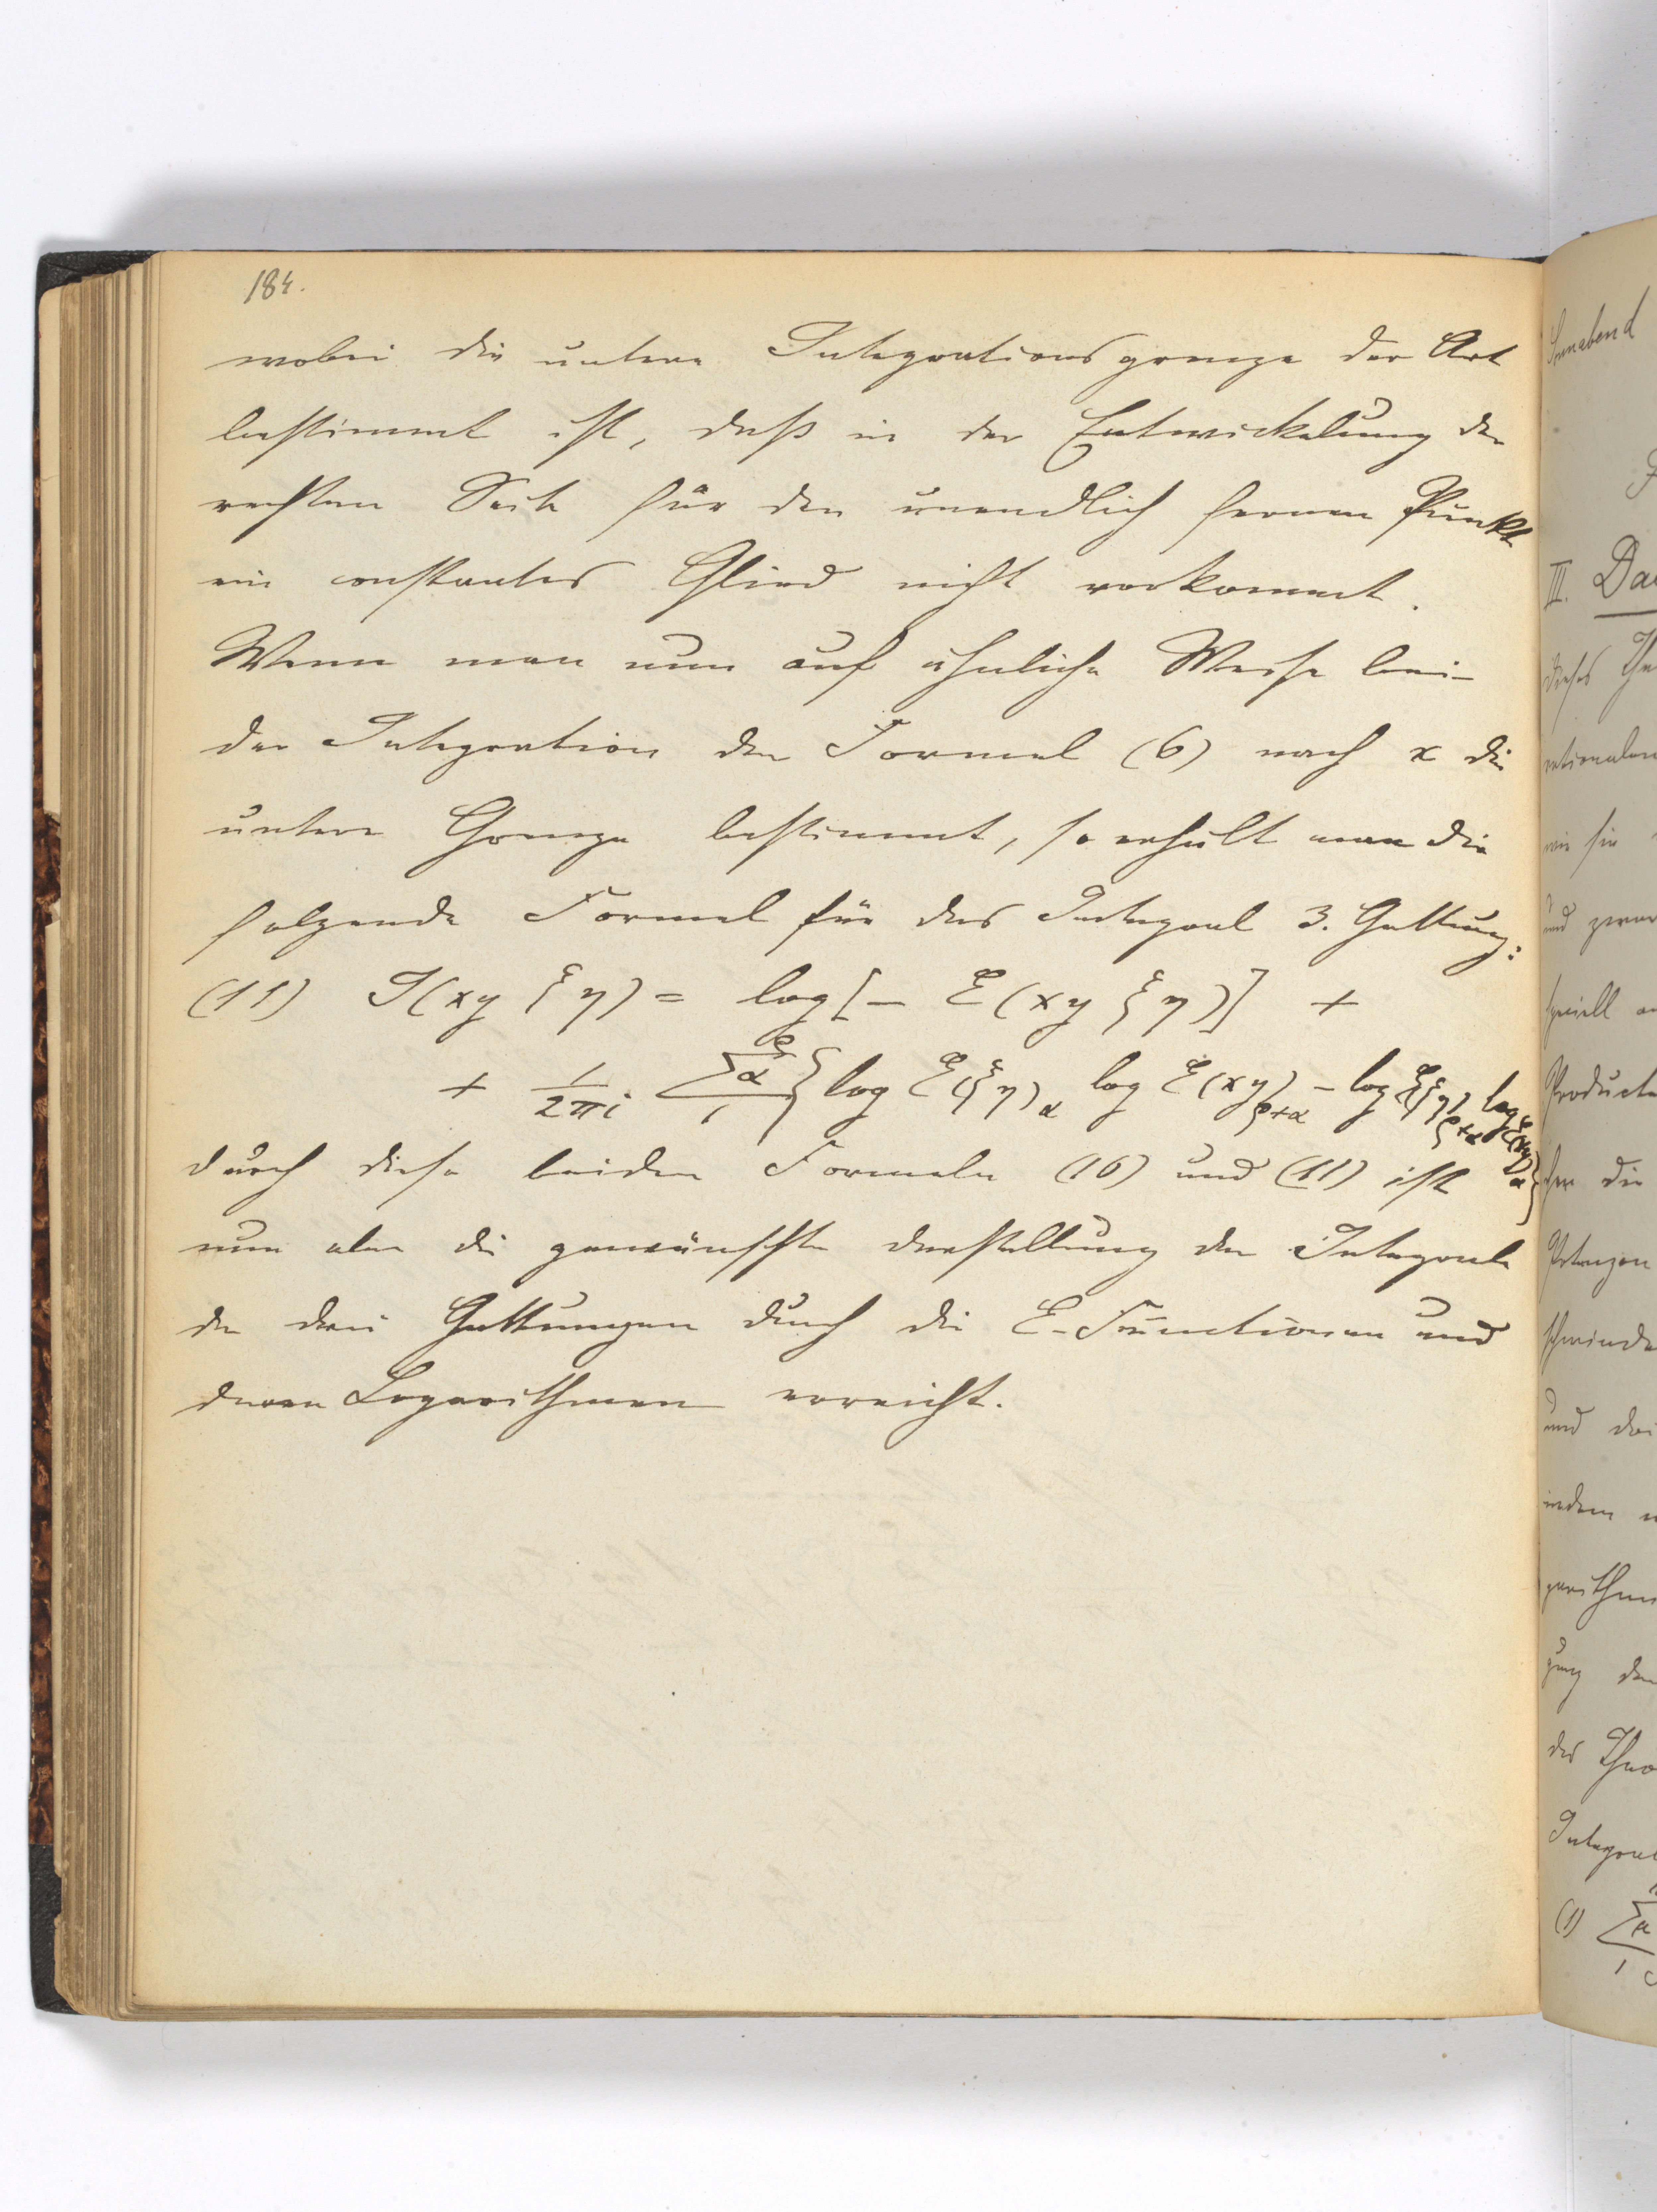 184.
wobei die untere Integrationsgrenze der Art
bestimmt ist, daß in der Entwickelung der
rechten Seite für den unendlich fernen Punkt
ein constantes Glied nicht vorkommt.
Wenn man nun auf ähnliche Weise bei
der Integration der Formel (6) nach x die
untere Grenze bestimmt, so erhält man die
folgende Formel für das Integral 3. Gattung:
(11) J(xy ξη) = log[- E(xy ξη)] +
+ 1/2πi Σα {log E(ξη)α log E(xy)ρ+α - log E(ξη)ρ+α log E(xy)α}
durch diese beiden Formeln (10) und (11) ist
nun aber die gewünschte Darstellung der Integrale
der drei Gattungen durch die E-Functionen und
deren Logarithmen erreicht.
Sonnabend
III. Da
dieses The
rationalen
wie sie
und zwar
speciell
Producte
die
Potenzen
schwinde
und
indem
garithm
gung der
des Theo
Integral
(1) Σ